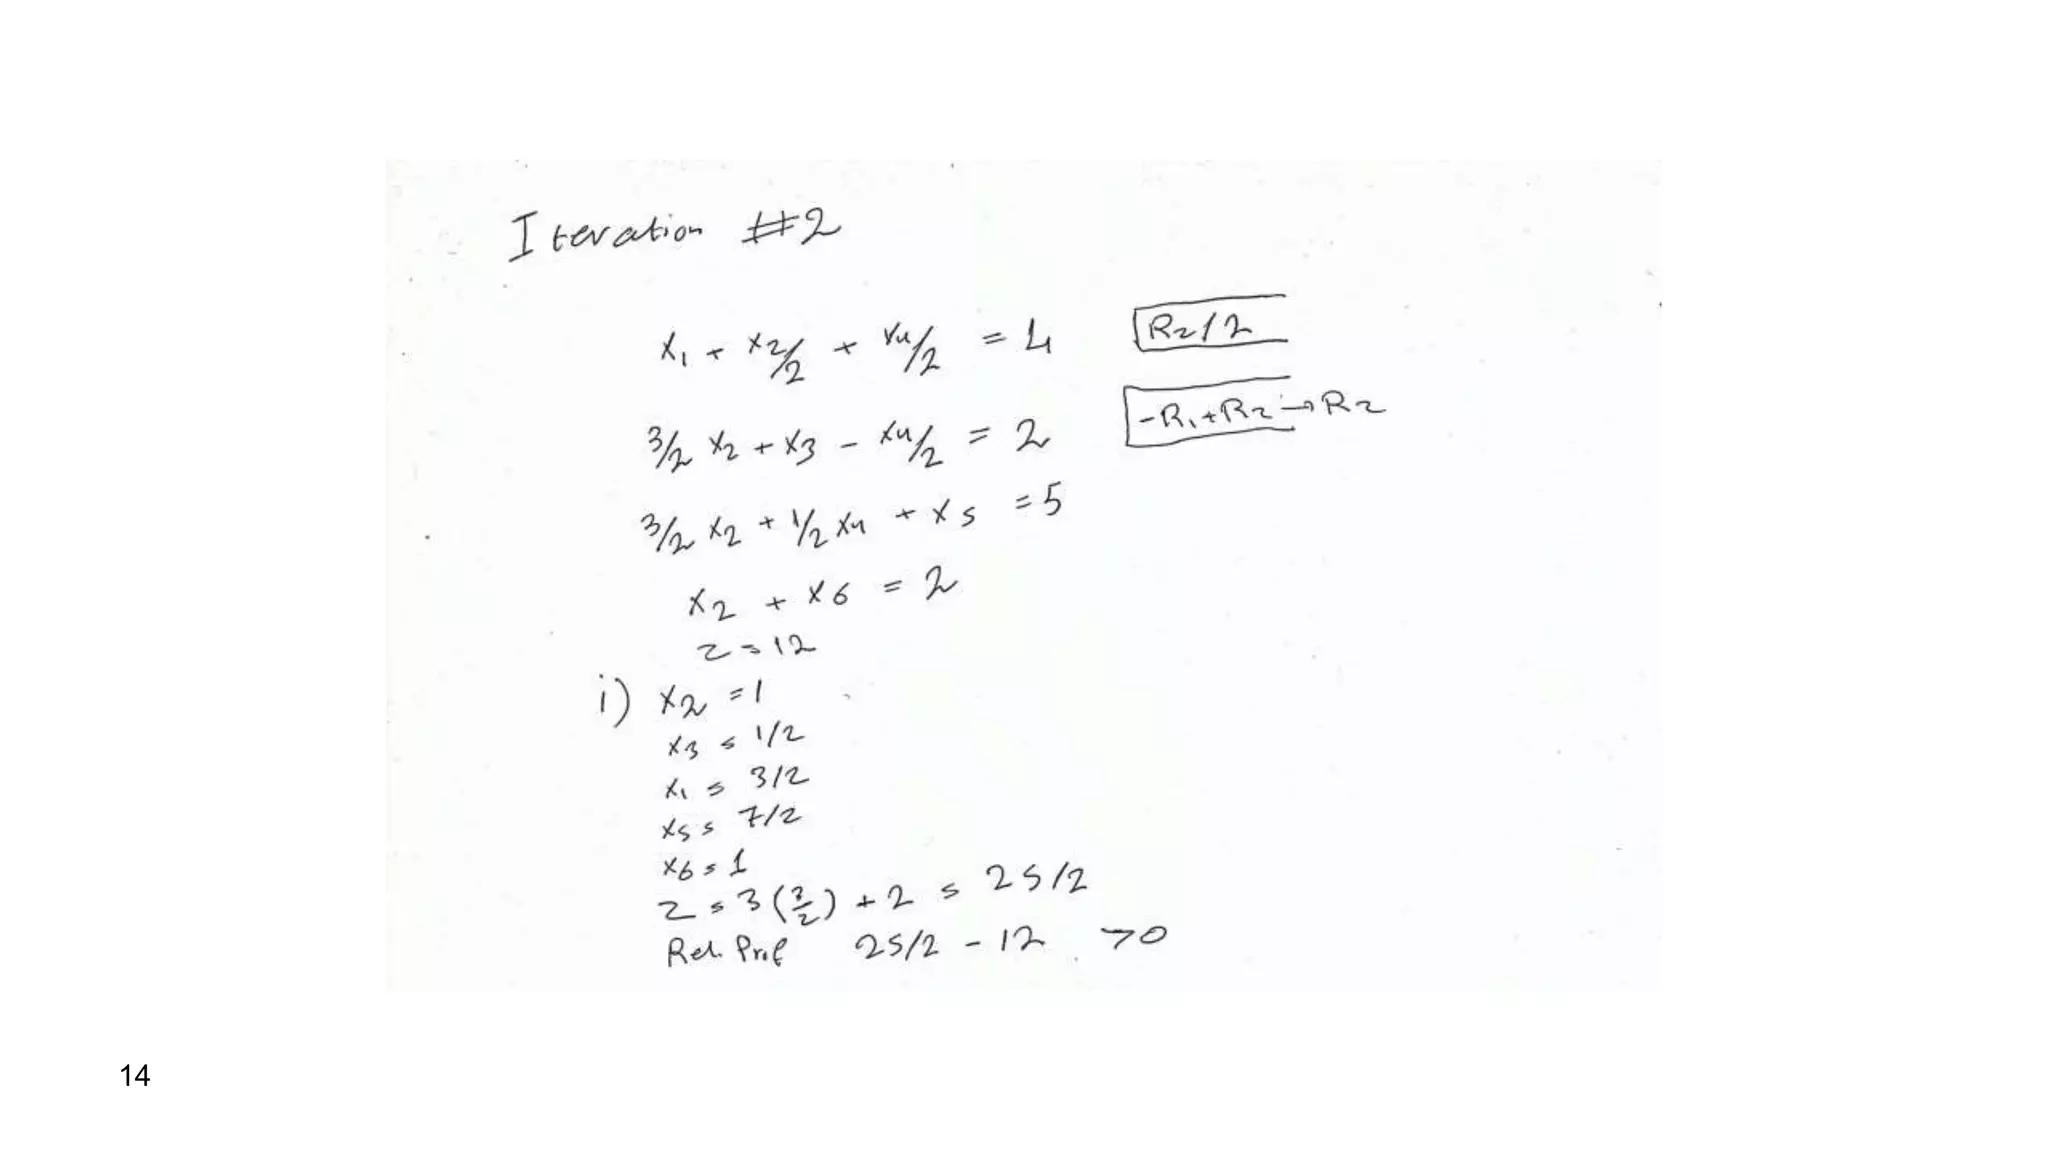 Iteration #2
x1 + x2/2 + x4/2 = 4 R2/2
3/2 x2 + x3 - x4/2 = 2 -R1+R2→R2
3/2 x2 + 1/2 x4 + x5 = 5
x2 + x6 = 2
z = 12
i) x2 = 1
x3 = 1/2
x1 = 3/2
x5 = 7/2
x6 = 1
z = 3(3/2) + 2 = 25/2
Rel. Prof 25/2 - 12 >0
14